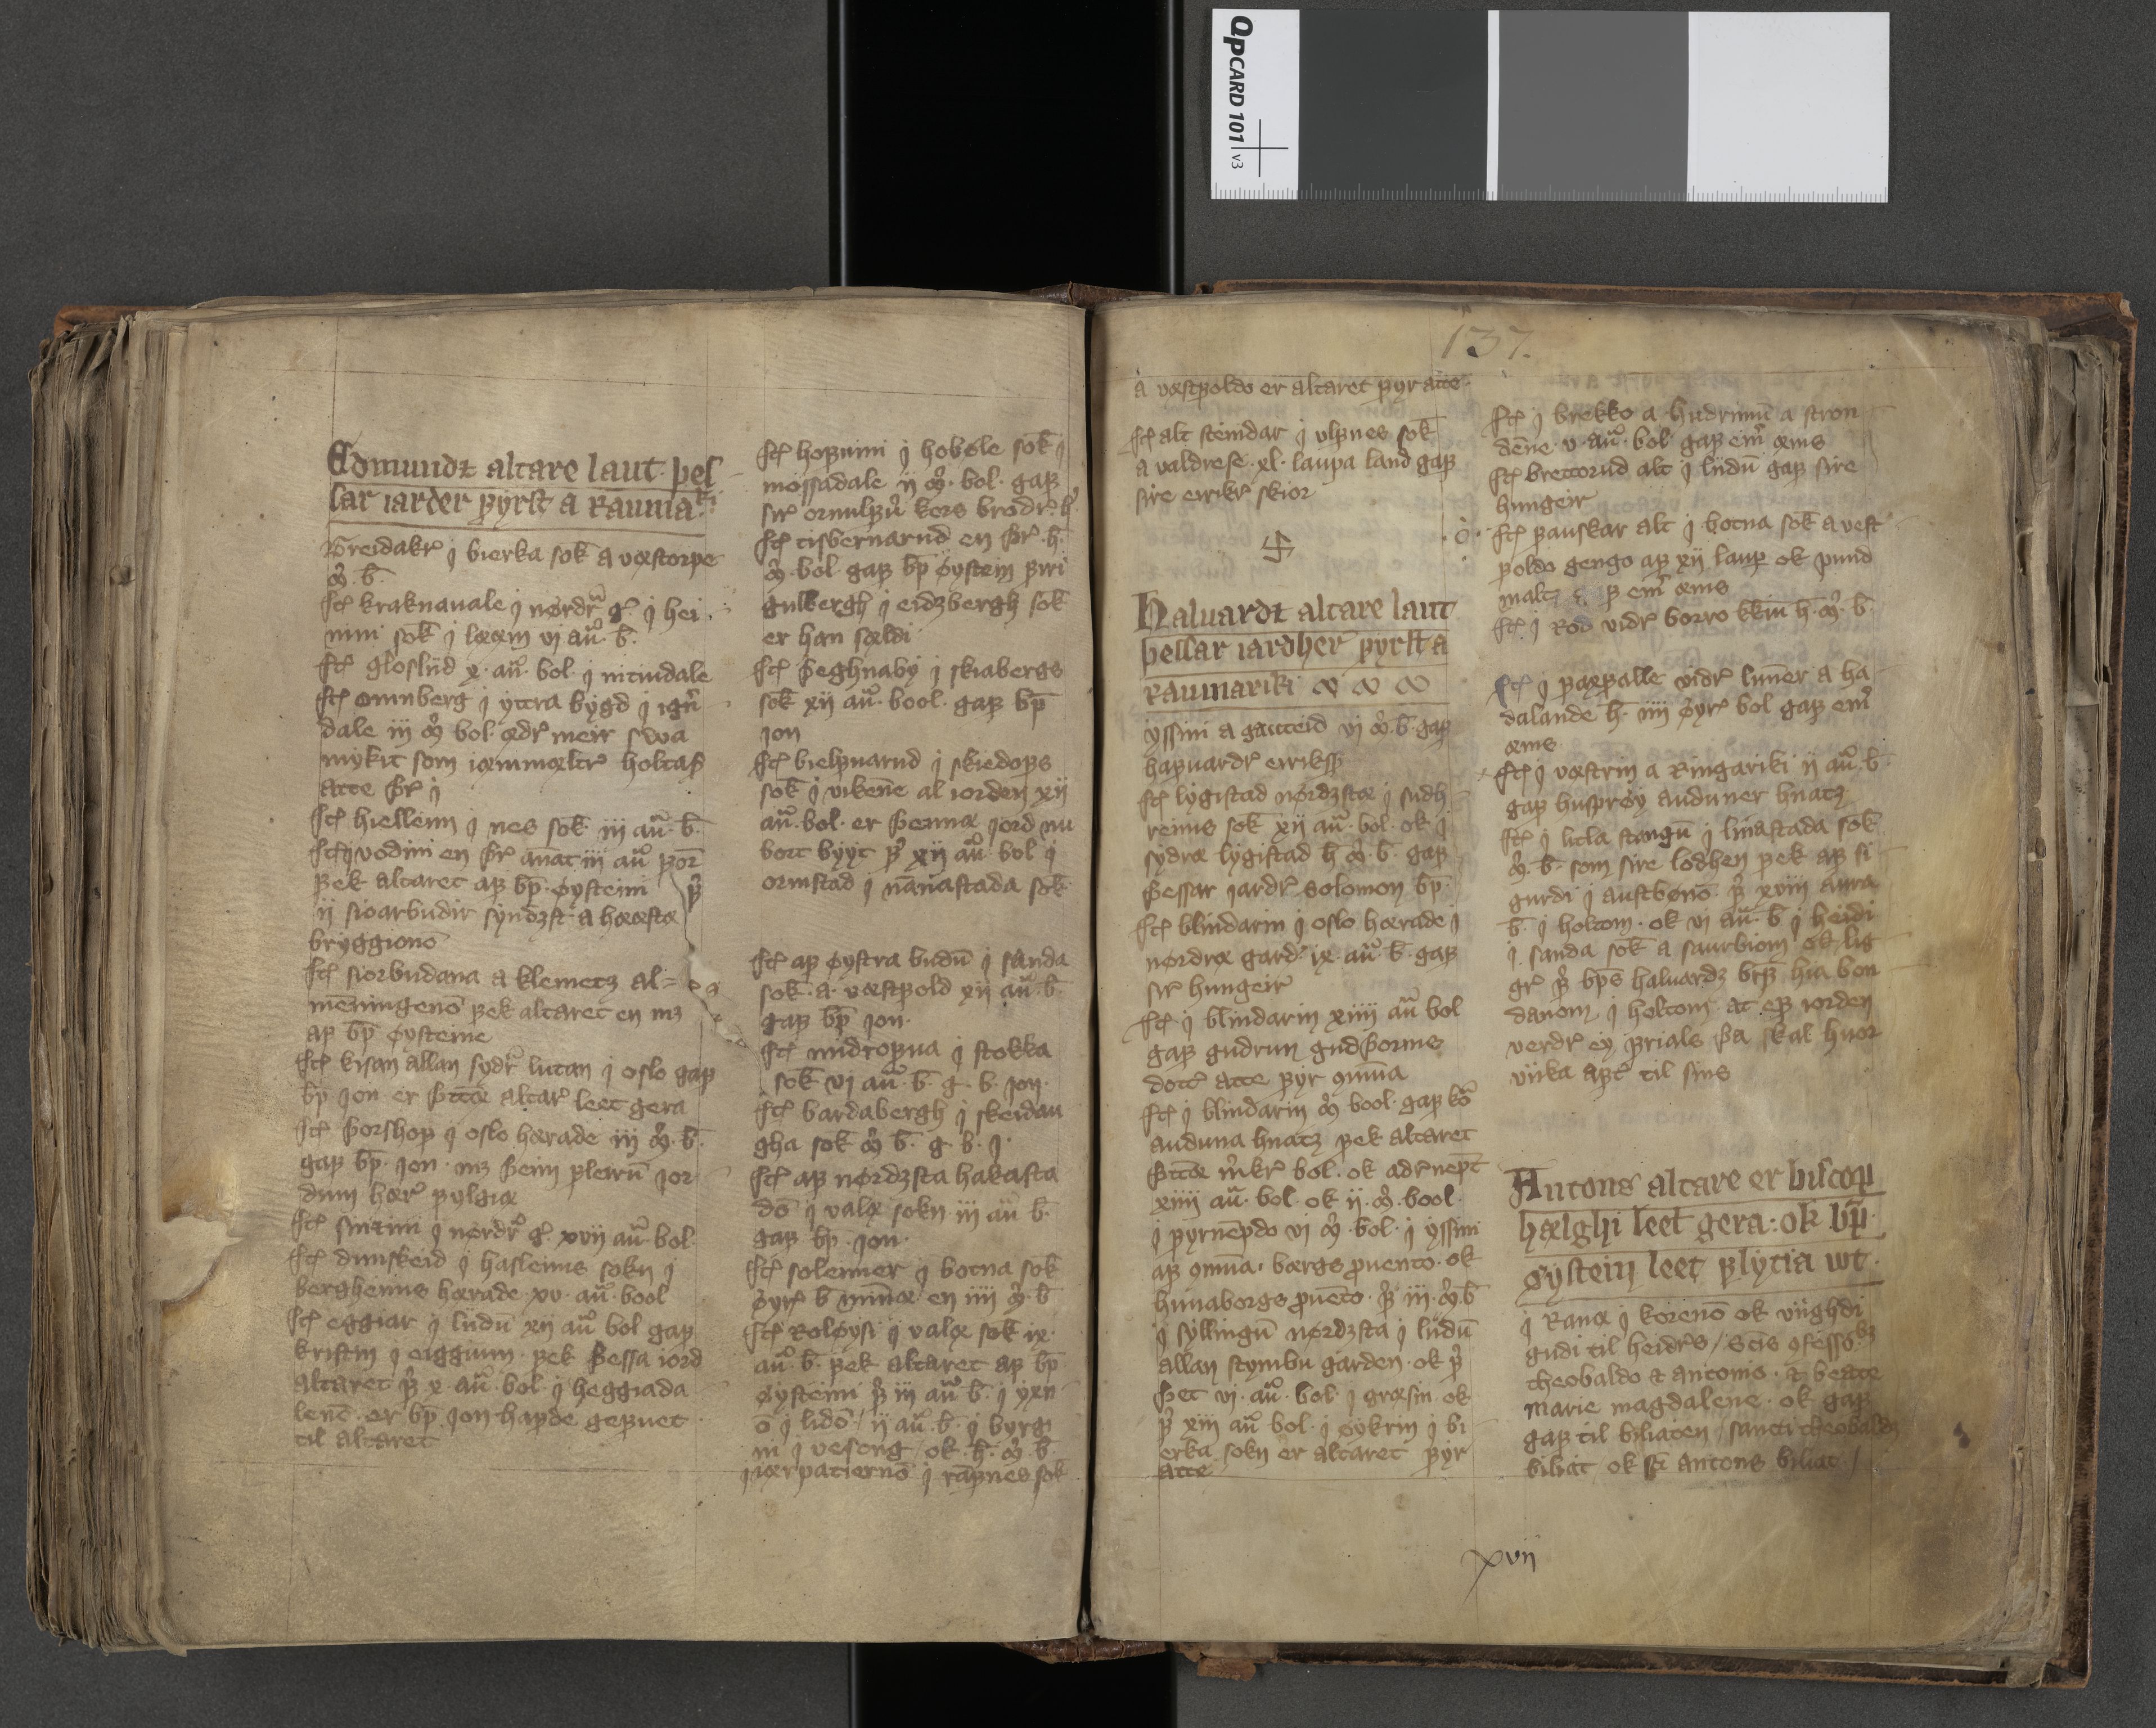 QPCARD 101 v3
Edmundz altare laut þes
sar iarder fyrst a Rauma
Breidakr j bierka sok a væstorpe
m b
Jtem kraknauale j nordr g j hei
nini sok j lææm vj au b
Jtem gloslud x au bol j nitiudale
Jtem onnberg j yttra bygd j ign
dale iij m bol ædr meir swa
mykit som iæmmæltr holtaf
atte þr j
Jtem hiellenn j nes sok iij au b
Jtem j vodini en þr annat iij au for
fek altaret af bp øysteini fr
ij sioarbudir syndzst a hææstæ
bryggionō
Jtem siorbudana a klemetz al=
mēzningenō fek altaret en mz
af bp øysteine
Jtem kisan allan sydr lutan j oslo gaf
bp jon er þttæ altar leet gera
Jtem þorshof j oslo hærade iij m b
gaf bp jon mz þeim flærū jor
dum hær fylgiæ
Jtem sintini j nordr g xvij au bol
Jtem dunskeid j hasleims sokn j
bergheims hærade xv au bool
Jtem eggiar j liidū xij au bol gaf
kristin j eiggium fek þessa iord
altaret fr x au bol j heggiada
lenē er bp jon hafde gefuet
til altaret
Jtem hofuini j hobøle sok j
mossadale ij m bol gaf
sir ornulfū kors brodr
Jtem tisbernarud en þr h
m bol gaf bp øystein firi
gulbergh j eidzbergh sok
er han sældi
Jtem þeghnaby j skiabergs
sok xij au bool gaf bp
jon
Jtem bielfuarud j skiedofs
sok j vikēne al iorden xij
au bol er þennæ jord nu
bort byyt fr xij au bol j
ormstad j nānastada sok
Jtem af øystra budū j sanda
sok a væstfold xij au b
gaf bp jon
Jtem midtofua j stokka
sok vj au b g b jon
Jtem bardabergh j skeidau
gha sok m b g b j
Jtem af nordzsta hakasta
dō j valæ sokn iij au b
gaf bp jon
Jtem solemer j botna sok
øyr b minæ en iiij m b
Jtem Roløysi j valæ sok ix
au b fek altaret af bp
øysteini fr iij au b j yxn
ō j lidō / ij au b j byrgi
ni j vesong ok h m b
j iærpatiernō j rāfnes sok
137.
a væstfoldo er altaret fyr atte
Jtem alt steindar j vlfnes sok
a valdrese xl laupa land gaf
sire eirikr skior
Haluardz altare laut
þessar iardher fyrst a
raumariki
yssini a gauteid vj m b gaf
hafuardr eiriksf
Jtem lygistad nordzstæ j sudh
reims sok xij au bol ok j
sydræ lygistad h m b gaf
þessar jardr solomon bp
Jtem blindarin j oslo hærade j
nordræ gard ix au b gaf
sir hungeir
Jtem j blindarin xiiij au bol
gaf gudrun gudþorms
dottr atte fyr onnna
Jtem j blindarin m bool gaf ko
auduna hnatz fek altaret
þttæ mkr bol ok adr nept
xiiij au bol ok ij m bool
j fyrnēfdo vj m bol j yssini
af omūa bærgs prouento ok
hunaborgs prouēto fr iij m b
j syllingū nordzsta j liidū
allan stymbu garden ok fr
þet vj au bol j græsin ok
fr xiij au bol j øykrin j bi
erka sokn er altaret fyr
atte
Jtem j brekko a hudrimū a stron
dēne v au bol gaf em æms
Jtem brettorud alt j liidū gaf sire
hungeir
Jtem fauskar alt j botna sok a vest
foldo gengo af xij laup ok pund
malt f em æms
Jtem j Rod vidr borro kkiu h m b
Jtem j faxfalle vidr lunēr a ha
dalande h iiij øyr bol gaf em
æms
Jtem j væstrin a Ringariki ij au b
gaf husfrøy auduner hnatz
Jtem j litla stangū j linastada sok
m b som sire lodhen fek af si
gurdi j austbønō fr xviij aura
b j holtom ok vj au b j heidi
j sanda sok a saurbiom ok lig
gr fr bps haluardz brf hia bon
danom j holtom at ef iorden
verdr ey frials þa skal huor
viika aftr til sins
Antons altare er biscop
hælghi leet gera: ok bp
øystein leet flytia wt
j Ranæ j korenō ok viighdi
gudi til heidrs / Scis confesso
theobaldo et antonio et beate
marie magdalene ok gaf
gaf til biliaten / sancti theobaldz
biliat ok sci antons biliat /
xvij